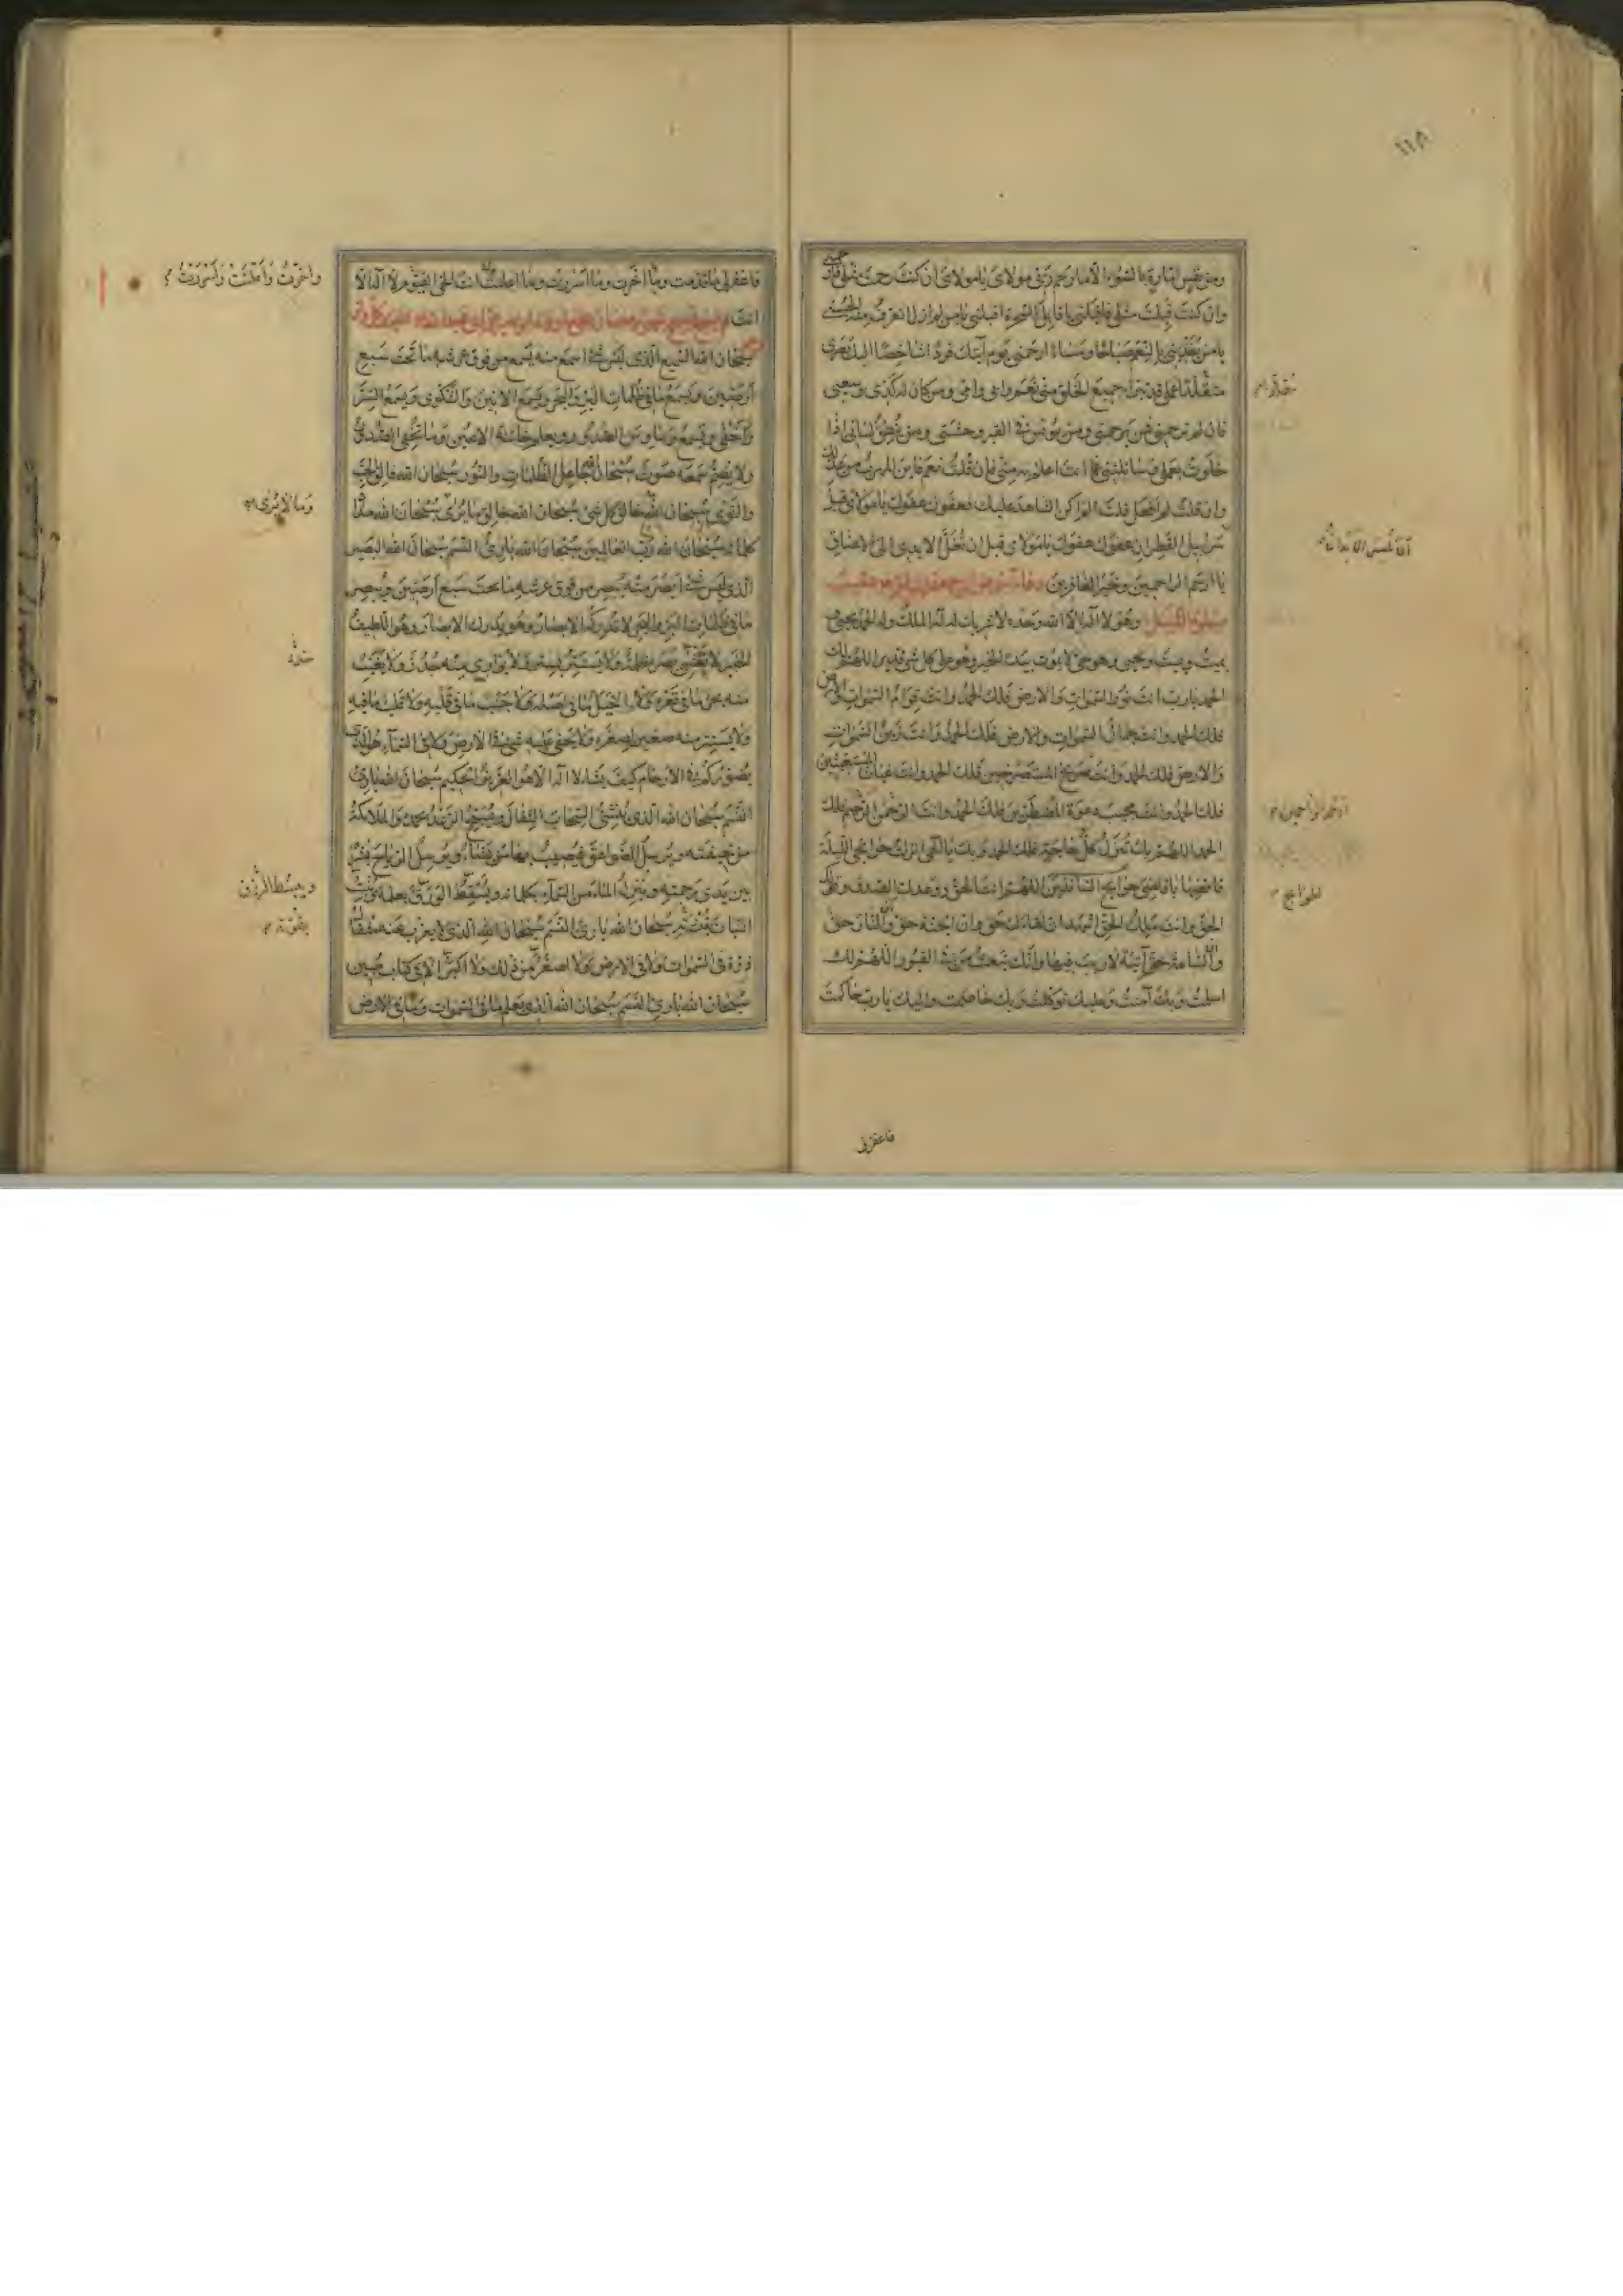 ١١٨
ومن نفس امارة بالسوء الا ما رحم ربى مولاى يا مولاى ان كنت رحمت مثلى فارحمنى
وان كنت قبلت مثلى فاقبلنى يا قابل السحرة اقبلنى يا من لم ازل اتعرف منه الحسنى
يا من يغذينى بالنعم صباحا ومساء ارحمنى يوم آتيك فردا شاخصا اليك بصرى
مقلدا عملى قد تبرأ جميع الخلق منى نعم وابى وامى ومن كان له كدى وسعيى
فان لم ترحمنى فمن يرحمنى ومن يونس فى القبر وحشتى ومن ينطق لسانى اذا
خلوت بعملى وسائلتنى عما انت اعلم به منى فان قلت نعم فاين المهرب من عدلك
وان قلت لم افعل قلت الم اكن الشاهد عليك فعفوك عفوك يا مولاى قبل
سرابيل القطران عفوك عفوك يا مولاى قبل ان تغل الايدى الى الاعناق
يا ارحم الراحمين وخير الغافرين
صلوة الليل وهو لا اله الا الله وحده لا شريك له له الملك وله الحمد يحيى و
يميت ويميت ويحيى وهو حى لا يموت بيده الخير وهو على كل شئ قدير اللهم لك
الحمد يا رب انت نور السموات والارض فلك الحمد وانت قوام السموات والارض
فلك الحمد وانت جمال السموات والارض فلك الحمد وانت زين السموات
والارض فلك الحمد وانت صريخ المستصرخين فلك الحمد وانت غياث المستغيثين
فلك الحمد وانت مجيب دعوة المضطرين فلك الحمد وانت الرحمن الرحيم فلك
الحمد اللهم بك تنزل كل حاجة فلك الحمد وبك يا الهى انزلت حوائجى الليلة
فاقضها يا قاضى حوائج السائلين اللهم انت الحق ووعدك الصدق وقولك
الحق وانت مليك الحق اشهد ان لقاءك حق وان الجنة حق والنار حق
والساعة حق آتية لا ريب فيها وانك تبعث من فى القبور اللهم لك
اسلمت وبك آمنت وعليك توكلت وبك خاصمت واليك يا رب حاكمت
ارحم الراحمين
الحوائج
فاغفر لى
فاغفر لى ما قدمت وما اخرت وما اسررت وما اعلنت انت الحى القيوم لا اله الا
انت
سبحان الله السميع الذى ليس شئ اسمع منه يسمع من فوق عرشه ما تحت سبع
ارضين ويسمع ما فى ظلمات البر والبحر ويسمع الانين والشكوى ويسمع السر
واخفى ويسمع وساوس الصدور ويعلم خائنة الاعين وما تخفى الصدور
ولا يصم سمعه صوت سبحان الله جاعل الظلمات والنور سبحان الله فالق الحب
والنوى سبحان الله خالق كل شئ سبحان الله خالق ما يرى سبحان الله مداد
كلماته سبحان الله رب العالمين سبحان الله بارئ النسم سبحان الله البصير
الذى ليس شئ ابصر منه يبصر من فوق عرشه ما تحت سبع ارضين ويبصر
ما فى ظلمات البر والبحر لا تدركه الابصار وهو يدرك الابصار وهو اللطيف
الخبير لا تغشى بصره ظلمة ولا يستتر بستر ولا يوارى منه جدر ولا يغيب
منه بحر ما فى قعره ولا جبل ما فى اصله ولا جنب ما فى قلبه ولا قلب ما فيه
ولا يستتر منه صغير لصغره ولا يخفى عليه شئ فى الارض ولا فى السماء هو الذى
يصوركم فى الارحام كيف يشاء لا اله الا هو العزيز الحكيم سبحان الله بارئ
النسم سبحان الله الذى ينشئ السحاب الثقال ويسبح الرعد بحمده والملائكة
من خيفته ويرسل الصواعق فيصيب بها من يشاء ويرسل الرياح بشرا
بين يدى رحمته وينزل الماء من السماء بكلماته ويسقط الورق بعلمه وينبت
النبات بقدرته سبحان الله بارئ النسم سبحان الله الذى لا يعزب عنه مثقال
ذرة فى السموات ولا فى الارض ولا اصغر من ذلك ولا اكبر الا فى كتاب مبين
سبحان الله بارئ النسم سبحان الله الذى يعلم ما فى السموات وما فى الارض
واخرت واعلنت واسررت
وما لا يرى
ويبسط الرزق
بقوته